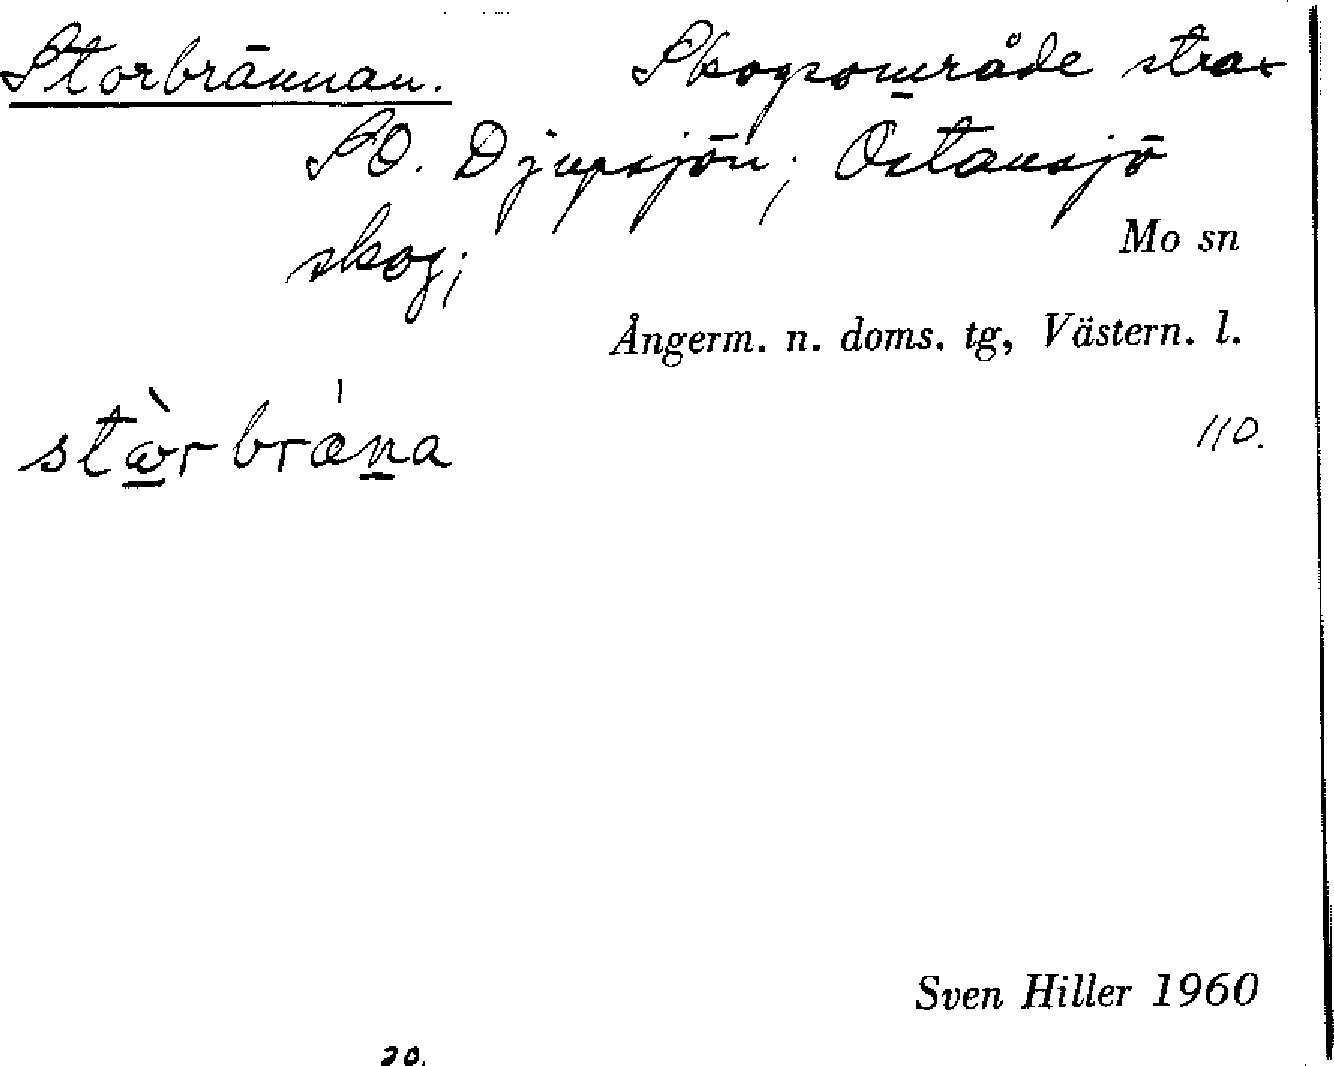 Storbrännan. Skogsområde strax
SO. Djupsjön; Östansjö
skog;
Mo sn
Ångerm. n. doms. tg, Västern. l.
stὼrbrǽn̲a
110.
Sven Hiller 1960
20.